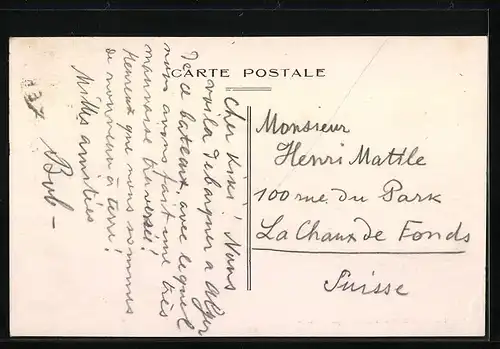 CARTE POSTALE
Cher Kiki! Nous
voila debarquer a Alger
De ce bateaux, avec lequel
nous avons fait une très
mauvaise traversée!
Heureux que nous sommes
de nouveau à terre!
Milles amitiés
Bob -
37
Monsieur
Henri Mattle
100 rue du Park
La Chaux de Fonds
Suisse